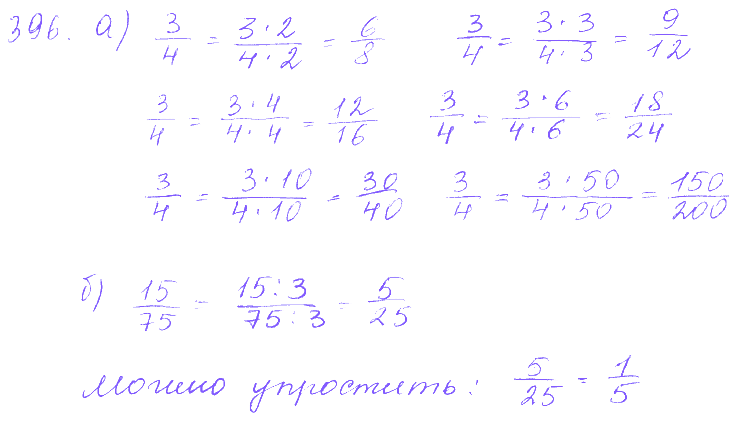 396. а) 3/4 = 3·2/4·2 = 6/8 3/4 = 3·3/4·3 = 9/12
3/4 = 3·4/4·4 = 12/16 3/4 = 3·6/4·6 = 18/24
3/4 = 3·10/4·10 = 30/40 3/4 = 3·50/4·50 = 150/200
б) 15/75 = 15:3/75:3 = 5/25
Можно упростить: 5/25 = 1/5